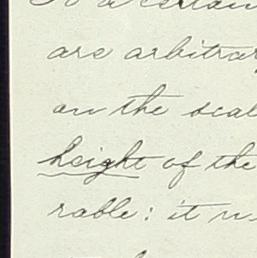 To a certain
are arbitrar
on the scal
height of the
rable: it